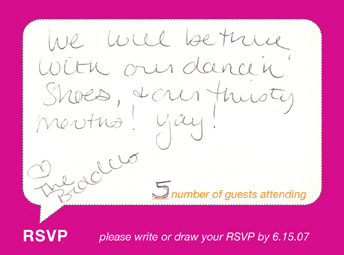 We will be there
with our dancin'
Shoes, & our thirsty
mouths! yay!
♡ The
5 number of guests attending
RSVP
please write or draw your RSVP by 6.15.07